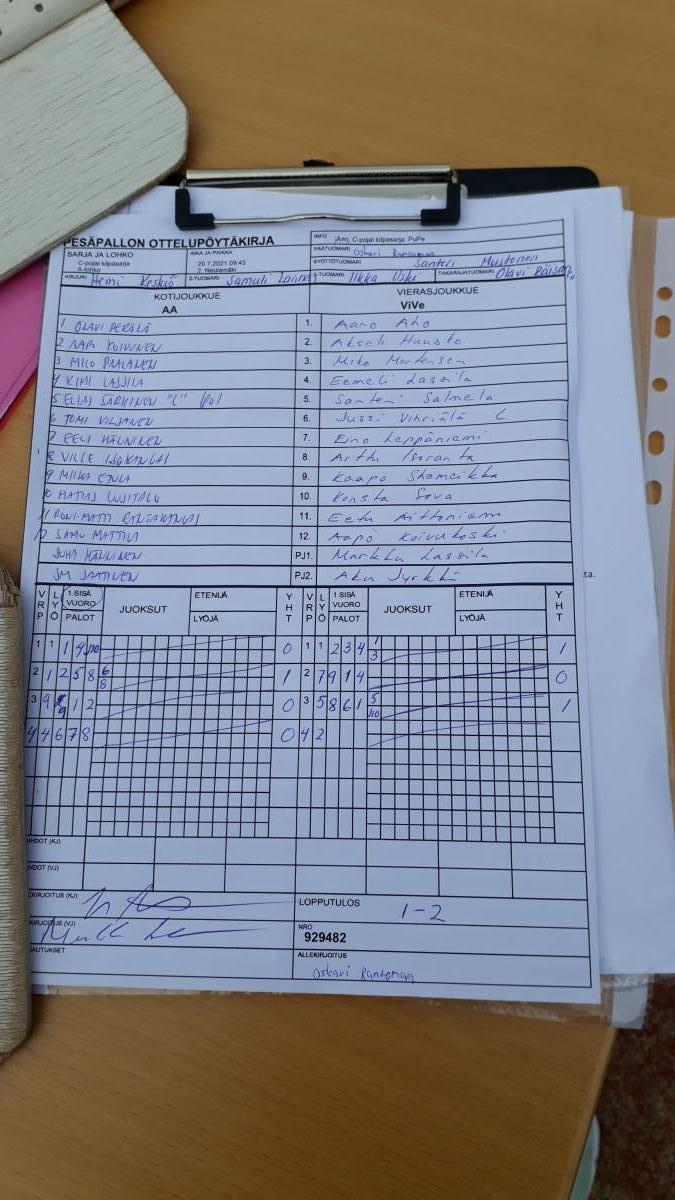 PESÄPALLON OTTELUPÖYTÄKIRJA
INFO jÄrej. C-pojat kilpasarja: PuPe
SARJA JA LOHKO
C-pojat kilpasarja
A-lohko
AIKA JA PAIKKA
20.7.2021 09:45
2. Neulamäki
PÄÄTUOMARI Oskari Rantamaa
SYÖTTÖTUOMARI Santeri Mustonen
KIRJURI Hemi
2-TUOMARI Samuli
3-TUOMARI Ilkka Uski
TAKARAJATUOMARI Olavi
KOTIJOUKKUE
AA
VIERASJOUKKUE
ViVe
1 OLAVI PERÄLÄ 1. Aaro Aho
2 AAPO KOIVUNEN 2. Akseli Huusko
3 MILO PAALANEN 3. Miko Mortensen
4 KIMI LASSILA 4. Eemeli Lassila
5 ELIAS SÄRKINEN "C" 5. Santeri Salmela
6 TOMI VILJANEN 6. Jussi Vihriälä C
7 EELI HÄNNINEN 7. Eino Leppäniemi
8 VILLE ISOKANGAS 8. Arttu Isoranta
9 MIIKA 9. Kaapo Shemeikka
10 MATIAS UUSITALO 10. Konsta Sova
11 RONI-MATTI RANTAKANGAS 11. Eetu Aittoniemi
12 SAMU MATTILA 12. Aapo Koivukoski
JUHA HÄNNINEN PJ1. Markku Lassila
JM SAATINEN PJ2. Aku Jyrkkä
VRP LYÖ 1.SISÄ VUORO PALOT JUOKSUT ETENIJÄ LYÖJÄ YHT VRP LYÖ 1.SISÄ VUORO PALOT JUOKSUT ETENIJÄ LYÖJÄ YHT
1 1 1 4 J10 0 1 1 2 3 4 1/3 1
2 1 2 5 8 6/8 1 2 7 9 1 4 0
3 9 9 1 2 0 3 5 8 6 1 5/J10 1
4 4 6 7 8 0 4 2
HDOT (KJ)
HDOT (VJ)
EKIRJOITUS (KJ)
LOPPUTULOS 1-2
KIRJOITUS (VJ)
NRO
929482
AUTUKSET
ALLEKIRJOITUS
Oskari Rantamaa
ta.